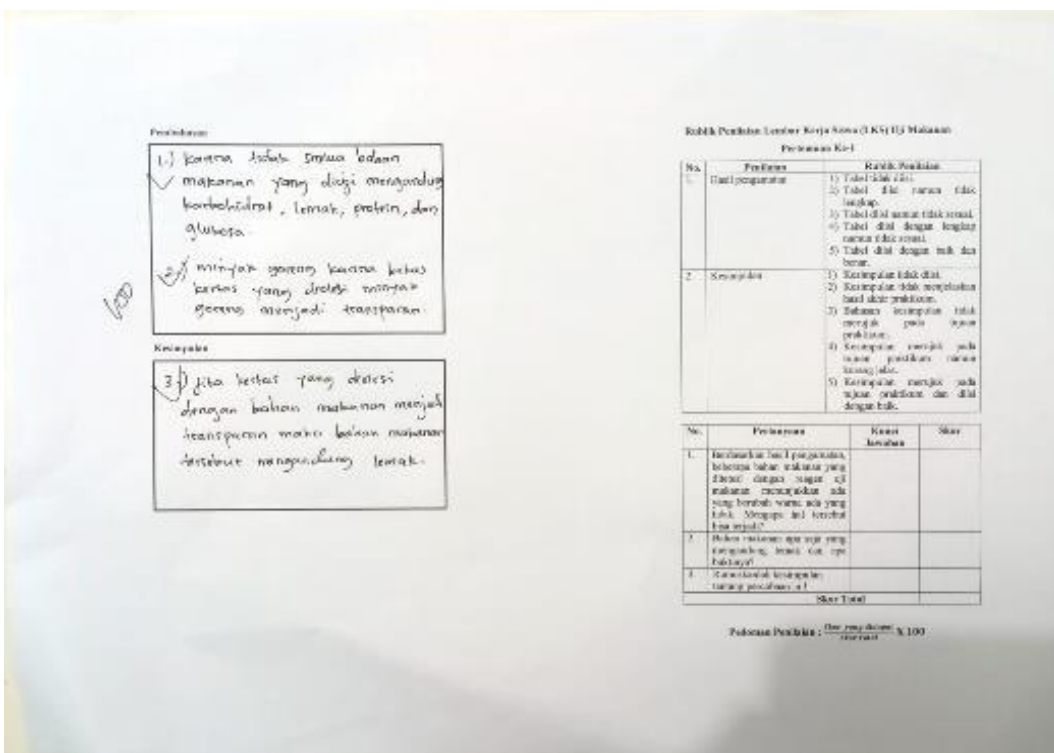 Pembahasan
1.) karena tidak semua bahan
makanan yang diuji mengandung
karbohidrat, lemak, protein, dan
glukosa.
2.) minyak goreng karena kertas
kertas yang diolesi minyak
goreng menjadi transparan.
100
Kesimpulan
3.) Jika kertas yang diolesi
dengan bahan makanan menjadi
transparan maka bahan makanan
tersebut mengandung lemak.
Rublik Penilaian Lembar Kerja Siswa (LKS) Uji Makanan
Pertemuan Ke-1
No. Penilaian Rublik Penilaian
1. Hasil pengamatan 1) Tabel tidak diisi.
2) Tabel diisi namun tidak
lengkap.
3) Tabel diisi namun tidak sesuai.
4) Tabel diisi dengan lengkap
namun tidak sesuai.
5) Tabel diisi dengan baik dan
benar.
2. Kesimpulan 1) Kesimpulan tidak diisi.
2) Kesimpulan tidak menjelaskan
hasil akhir praktikum.
3) Bahasan kesimpulan tidak
merujuk pada tujuan
praktikum.
4) Kesimpulan merujuk pada
tujuan praktikum namun
kurang jelas.
5) Kesimpulan merujuk pada
tujuan praktikum dan diisi
dengan baik.
No. Pertanyaan Kunci Jawaban Skor
1. Berdasarkan hasil pengamatan,
beberapa bahan makanan yang
ditetesi dengan reagen uji
makanan menunjukkan ada
yang berubah warna ada yang
tidak. Mengapa hal tersebut
bisa terjadi?
2. Bahan makanan apa saja yang
mengandung lemak dan apa
buktinya?
3. kesimpulan
tentang percobaan ini!
Skor Total
Pedoman Penilaian : X 100